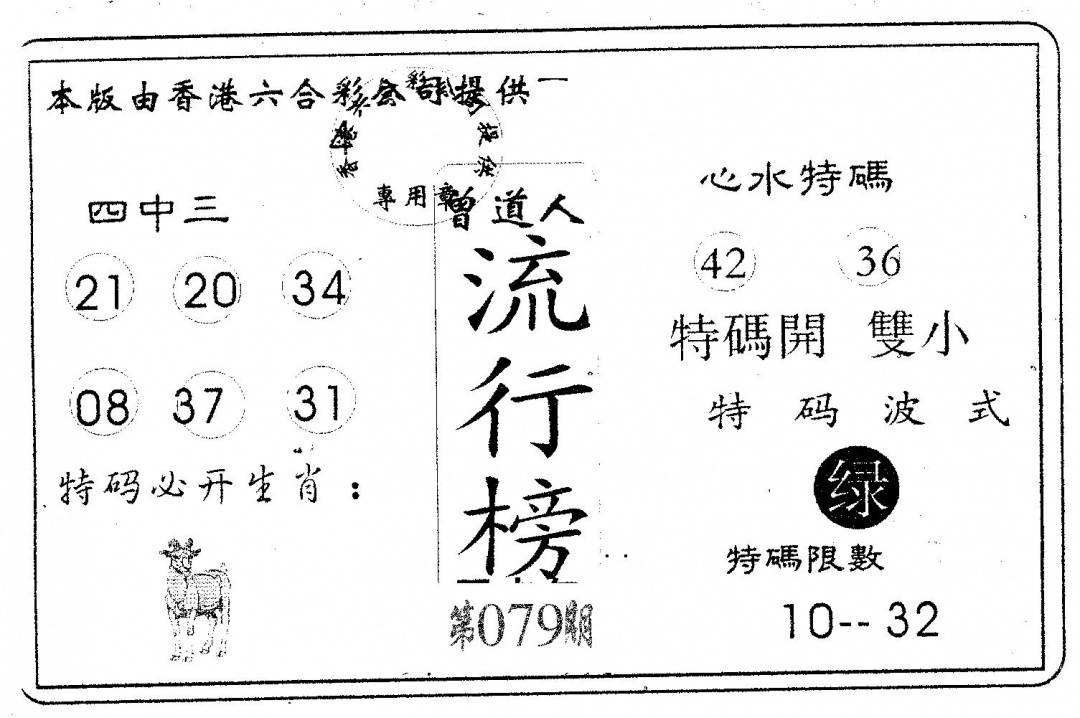 本版由香港六合彩公司提供
專用章
四中三
21 20 34
08 37 31
特码必开生肖：
曾道人
流行榜
第079期
心水特碼
42 36
特碼開 雙小
特码波式
绿
特碼限數
10-- 32